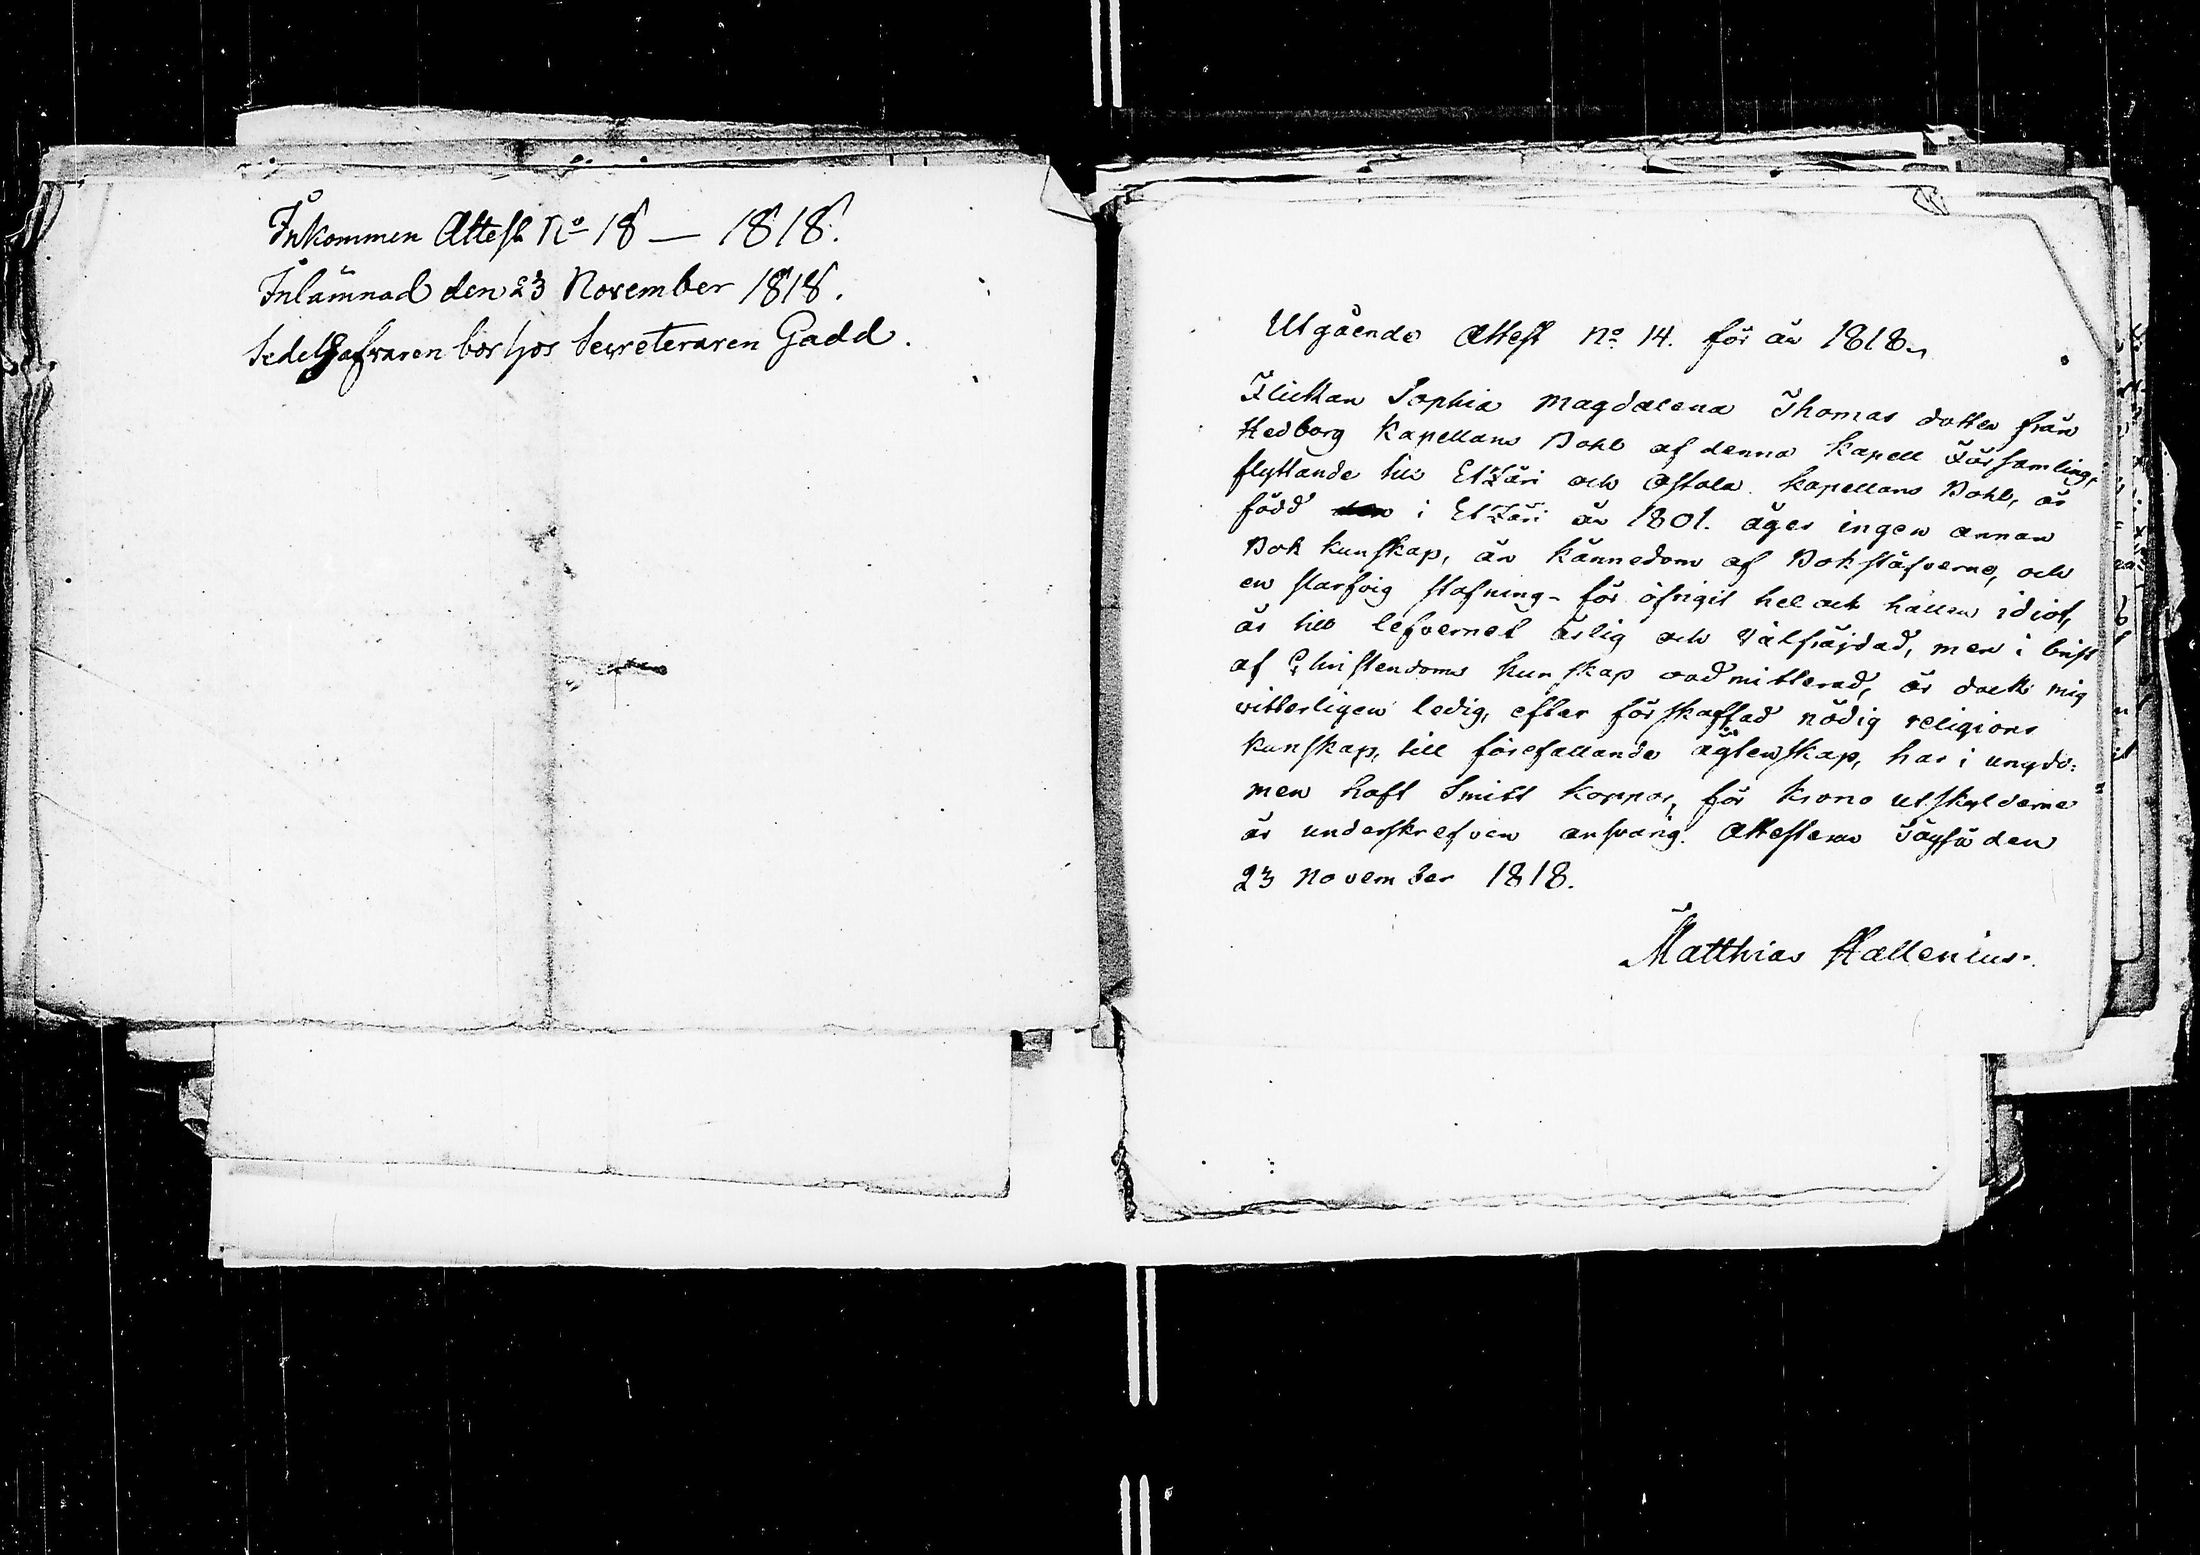 Inkommen Attest No 18 — 1818.
Inlämnad den 23 November 1818.
Sedelhafvaren bor hos Secreteraren Gadd.
Utgående Attest No 14. för år 1818.
Flickan Sophia Magdalena Thomas dotter från
Hedborg Kapellans Bohl af denna Kapell Församling,
flyttande till Etzäri och Ostola Kapellans Bohl, är
född i Etzäri år 1801. äger ingen annan
Bok kunskap, än kännedom af Bokstäfverne, och
en starfvig stafning - för öfrigit hel och hållen idiot,
är till lefvernet ärlig och välfräjdad, men i brist
af Christendoms kunskap oadmitterad, är dock mig
vitterligen ledig, efter förskaffad nödig religions
kunskap, till förefallande ägtenskap, har i ungdo:
men haft Smitt koppor, för krono utskylderne
är underskrefven ansvarig. Attesteras den
23 November 1818.
Matthias Hallenius.